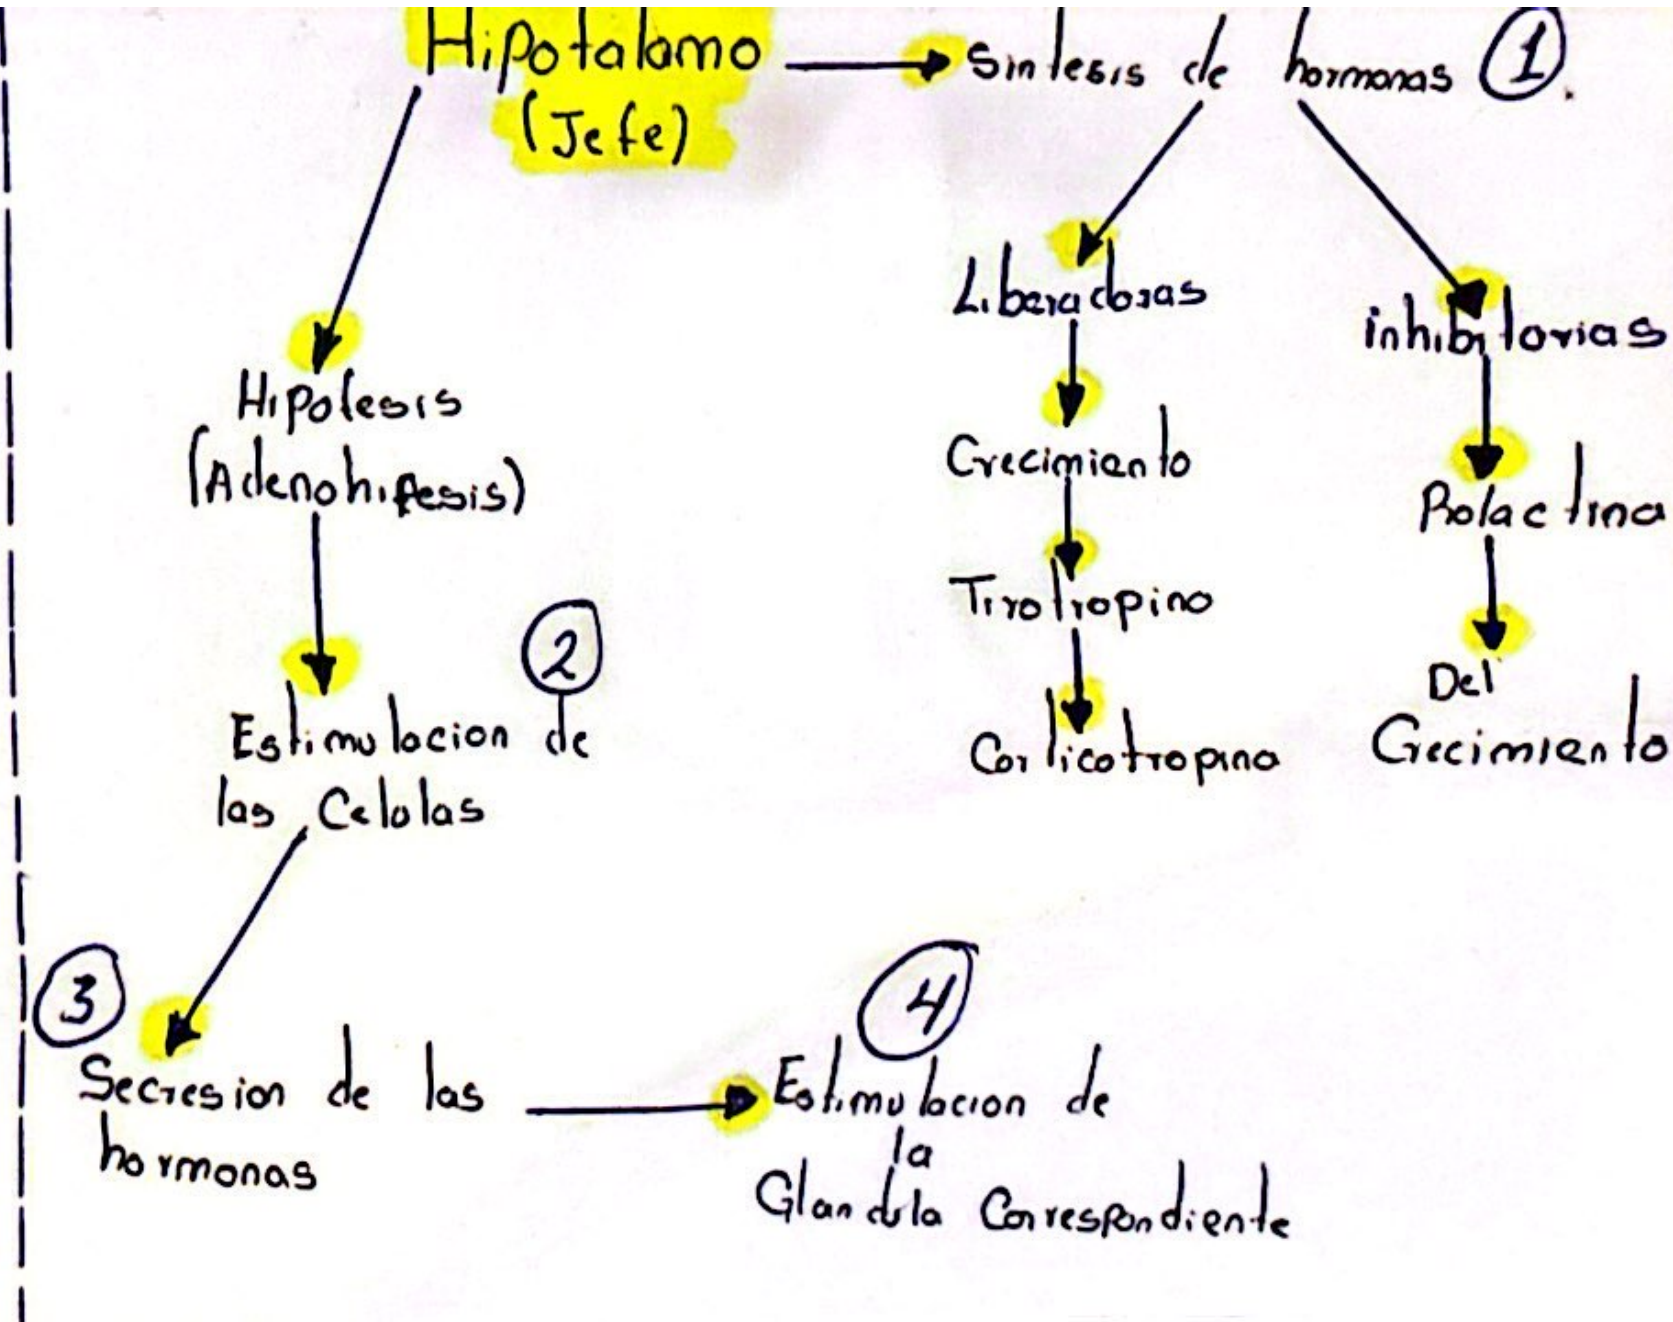 Hipotalamo
(Jefe)
Sintesis de hormonas 1.
Liberadoras
Crecimiento
Tirotropino
Corticotropina
inhibitorias
Prolactina
Del
Crecimiento
Hipofesis
(Adenohifesis)
2
Estimulacion de
las Celulas
3
Secresion de las
hormonas
4
Estimulacion de
la
Glandula Correspondiente